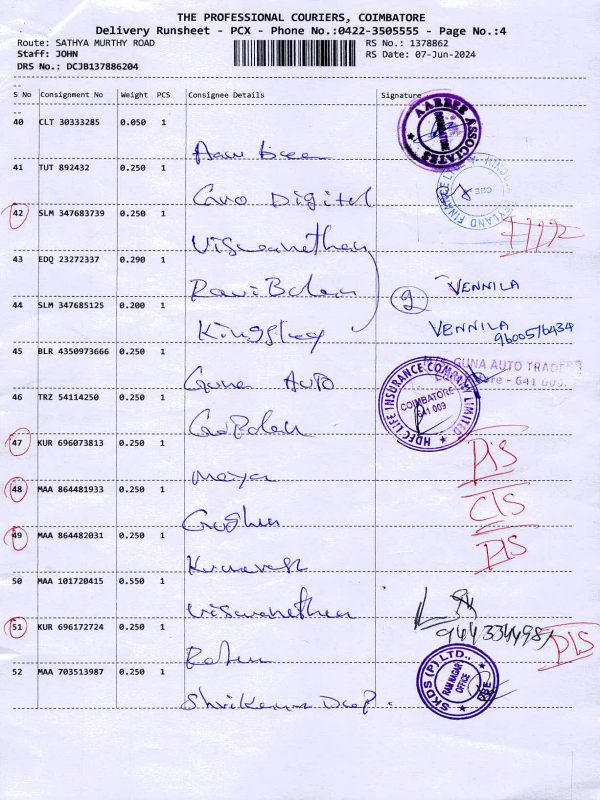 THE PROFESSIONAL COURIERS, COIMBATORE
Delivery Runsheet - PCX - Phone No.:0422-3505555 - Page No.:4
Route: SATHYA MURTHY ROAD
RS No.: 1378862
Staff: JOHN
RS Date: 07-Jun-2024
DRS No.: DCJB137886204
S No Consignment No Weight PCS Consignee Details Signature
40 CLT 30333285 0.050 1
AARBEE ASSOCIATES
COIMBATORE
41 TUT 892432 0.250 1
Digitel
CBE
42 SLM 347683739 0.250 1
Viswanethan
43 EDQ 23272337 0.290 1
Ravi Balan
2 VENNILA
44 SLM 347685125 0.200 1
Kingsley
VENNILA
9600576434
45 BLR 4350973666 0.250 1
Guna Auto
GUNA AUTO TRADERS
- 641 003.
HDFC LIFE INSURANCE COMPANY LIMITED
COIMBATORE
641 009
46 TRZ 54114250 0.250 1
Gopalan
47 KUR 696073813 0.250 1
Maya
DIS
48 MAA 864481933 0.250 1
CIS
49 MAA 864482031 0.250 1
Kumaresh
DIS
50 MAA 101720415 0.550 1
Viswanethan
9443344981
51 KUR 696172724 0.250 1
DIS
52 MAA 703513987 0.250 1
Shrikumar
SKDS (P) LTD.,
RAM NAGAR
OFFICE
CBE